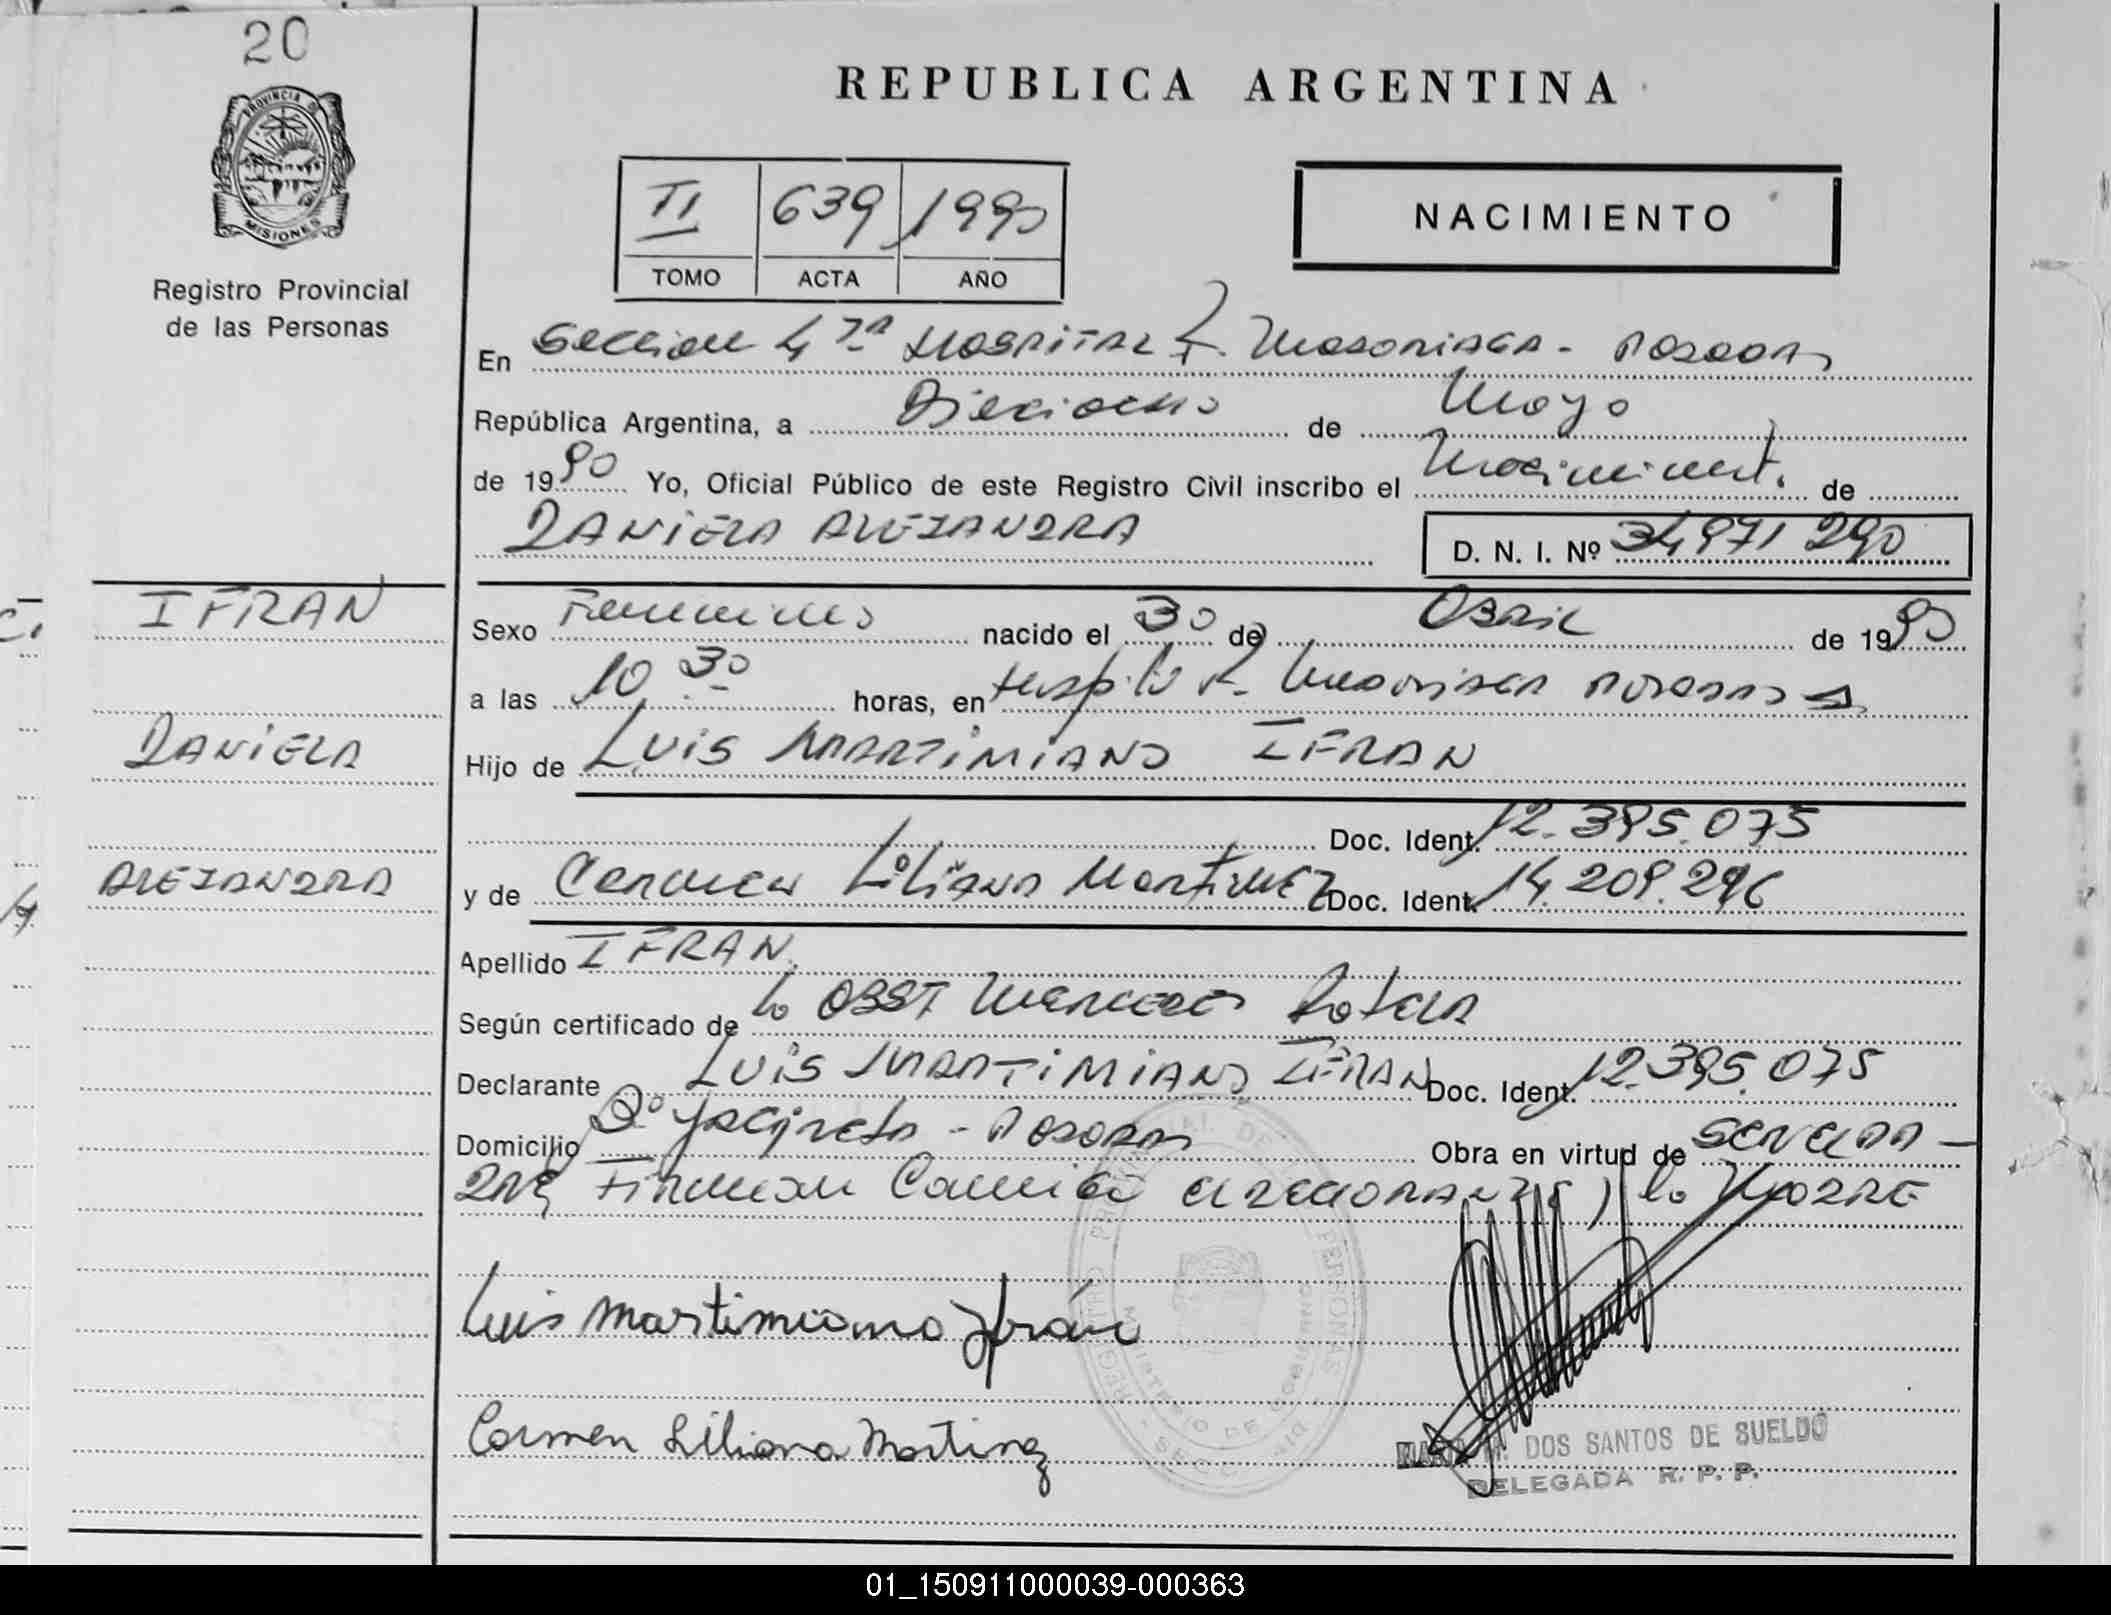 20
PROVINCIA D
MISIONES
Registro Provincial
de las Personas
REPUBLICA ARGENTINA
II 639 1990
TOMO ACTA AÑO
NACIMIENTO
En Seccion 4ta Hospital R. Madariaga - Posadas
República Argentina, a Dieciocho de Mayo
de 1990 Yo, Oficial Público de este Registro Civil inscribo el Nacimiento de
DANIELA ALEJANDRA D. N. I. Nº 34971290
IFRAN
DANIELA
ALEJANDRA
Sexo Femenino nacido el 30 de Abril de 1990
a las 10.30 horas, en Hospital R. Madariaga Posadas
Hijo de LUIS MARTIMIANO IFRAN
Doc. Ident. 12.395.075
y de Carmen Liliana Martinez Doc. Ident. 14.209.296
Apellido IFRAN
Según certificado de la OBST Mercedes
Declarante LUIS MARTIMIANO IFRAN Doc. Ident. 12.395.075
Domicilio Bº Yacireta - Posadas Obra en virtud de
Firman el la Madre
Luis Martimiano Ifrán
Carmen Liliana Martinez
REGISTRO PROVINCIAL DE LAS PERSONAS
MINISTERIO DE GOBIERNO
M. DOS SANTOS DE SUELDO
DELEGADA R. P. P.
01_150911000039-000363